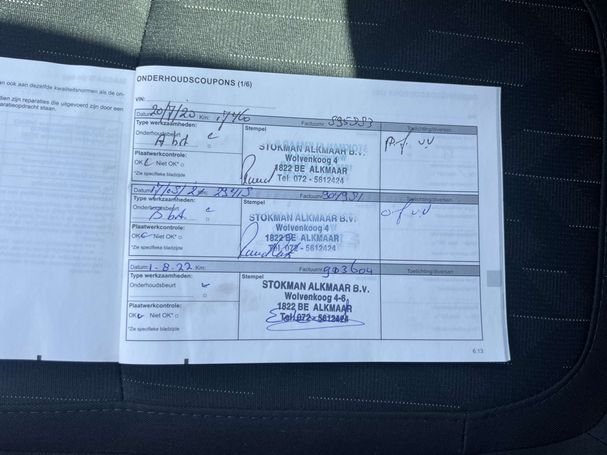 an ook aan dezelfde kwaliteitsnormen als de on-
dien zijn reparaties die uitgevoerd zijn door een
aratieopdracht staan.
ONDERHOUDSCOUPONS (1/6)
VIN:
Datum: 20/7/20 Km: Factuurnr:
Type werkzaamheden: Stempel Toelichting/diversen
Onderhoudsbeurt
STOKMAN ALKMAAR B.V.
Wolvenkoog 4
1822 BE ALKMAAR
Tel. 072 - 5612424
Plaatwerkcontrole:
OK Niet OK*
*Zie specifieke bladzijde
Datum: Km: Factuurnr:
Type werkzaamheden: Stempel Toelichting/diversen
Onderhoudsbeurt
STOKMAN ALKMAAR B.V.
Wolvenkoog 4
1822 BE ALKMAAR
Tel. 072 - 5612424
Plaatwerkcontrole:
OK Niet OK*
*Zie specifieke bladzijde
Datum: 1-8-22 Km: Factuurnr: 903604
Type werkzaamheden: Stempel Toelichting/diversen
Onderhoudsbeurt
STOKMAN ALKMAAR B.V.
Wolvenkoog 4-6
1822 BE ALKMAAR
Tel. 072 - 5612424
Plaatwerkcontrole:
OK Niet OK*
*Zie specifieke bladzijde
6.13